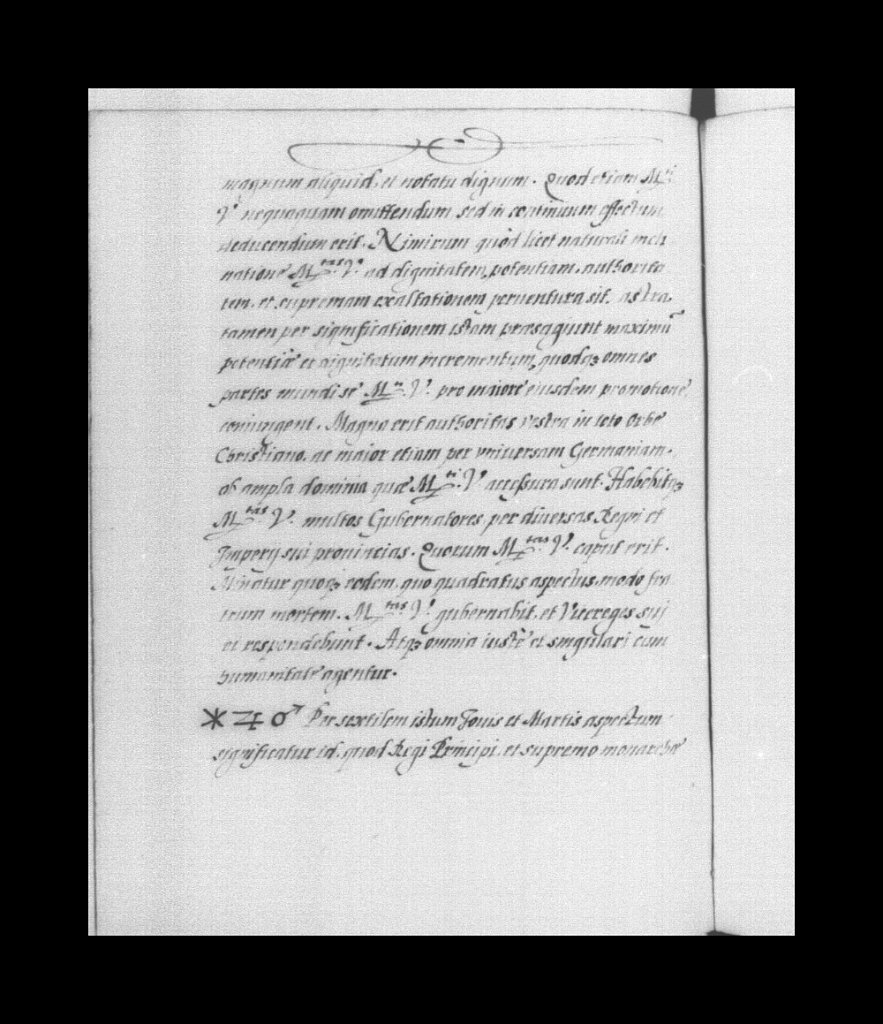 magnum aliquid, et notatu dignum. Quod etiam M.ti
V.ę nequaquam omittendum sed in continuum effectum
deducendum erit. Nimirum quòd licet naturali incli
natione M.tas V.ª ad dignitatem, potentiam, authorita
tem, et supremam exaltationem perventura sit, astra,
tamen per significationem istam præsagiunt maximũ
potentiæ et dignitatum incrementum, quodqꝫ omnes
partes mundi se M.ti V.ę pro maiore eiusdem promotione,
coniungent. Magna erit authoritas vestra in toto Orbe
Christiano, ac maior etiam per vniversam Germaniam,
ob ampla dominia quæ M.ti V.ę accessura sunt. Habebitqꝫ
M.tas V.ª multos Gubernatores, per diversas Regni et
Imperij sui provincias. Quorum M.tas V.ª caput erit.
Minatur quoqꝫ eodem, quo quadratus aspectus, modo fra
trum mortem. M.tas V.ª gubernabit, et Vicereges sui
ei respondebunt. Atqꝫ omnia iustè et singulari cum
humanitate agentur.
⚹ ♃ ♂ Per sextilem istum Jovis et Martis aspectum
significatur id, quod Regi Principi, et supremo monarchæ